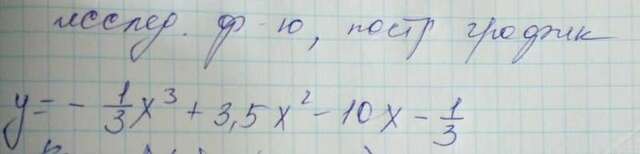 исслед. ф-ю, постр график
y = - 1/3 x³ + 3,5x² - 10x - 1/3